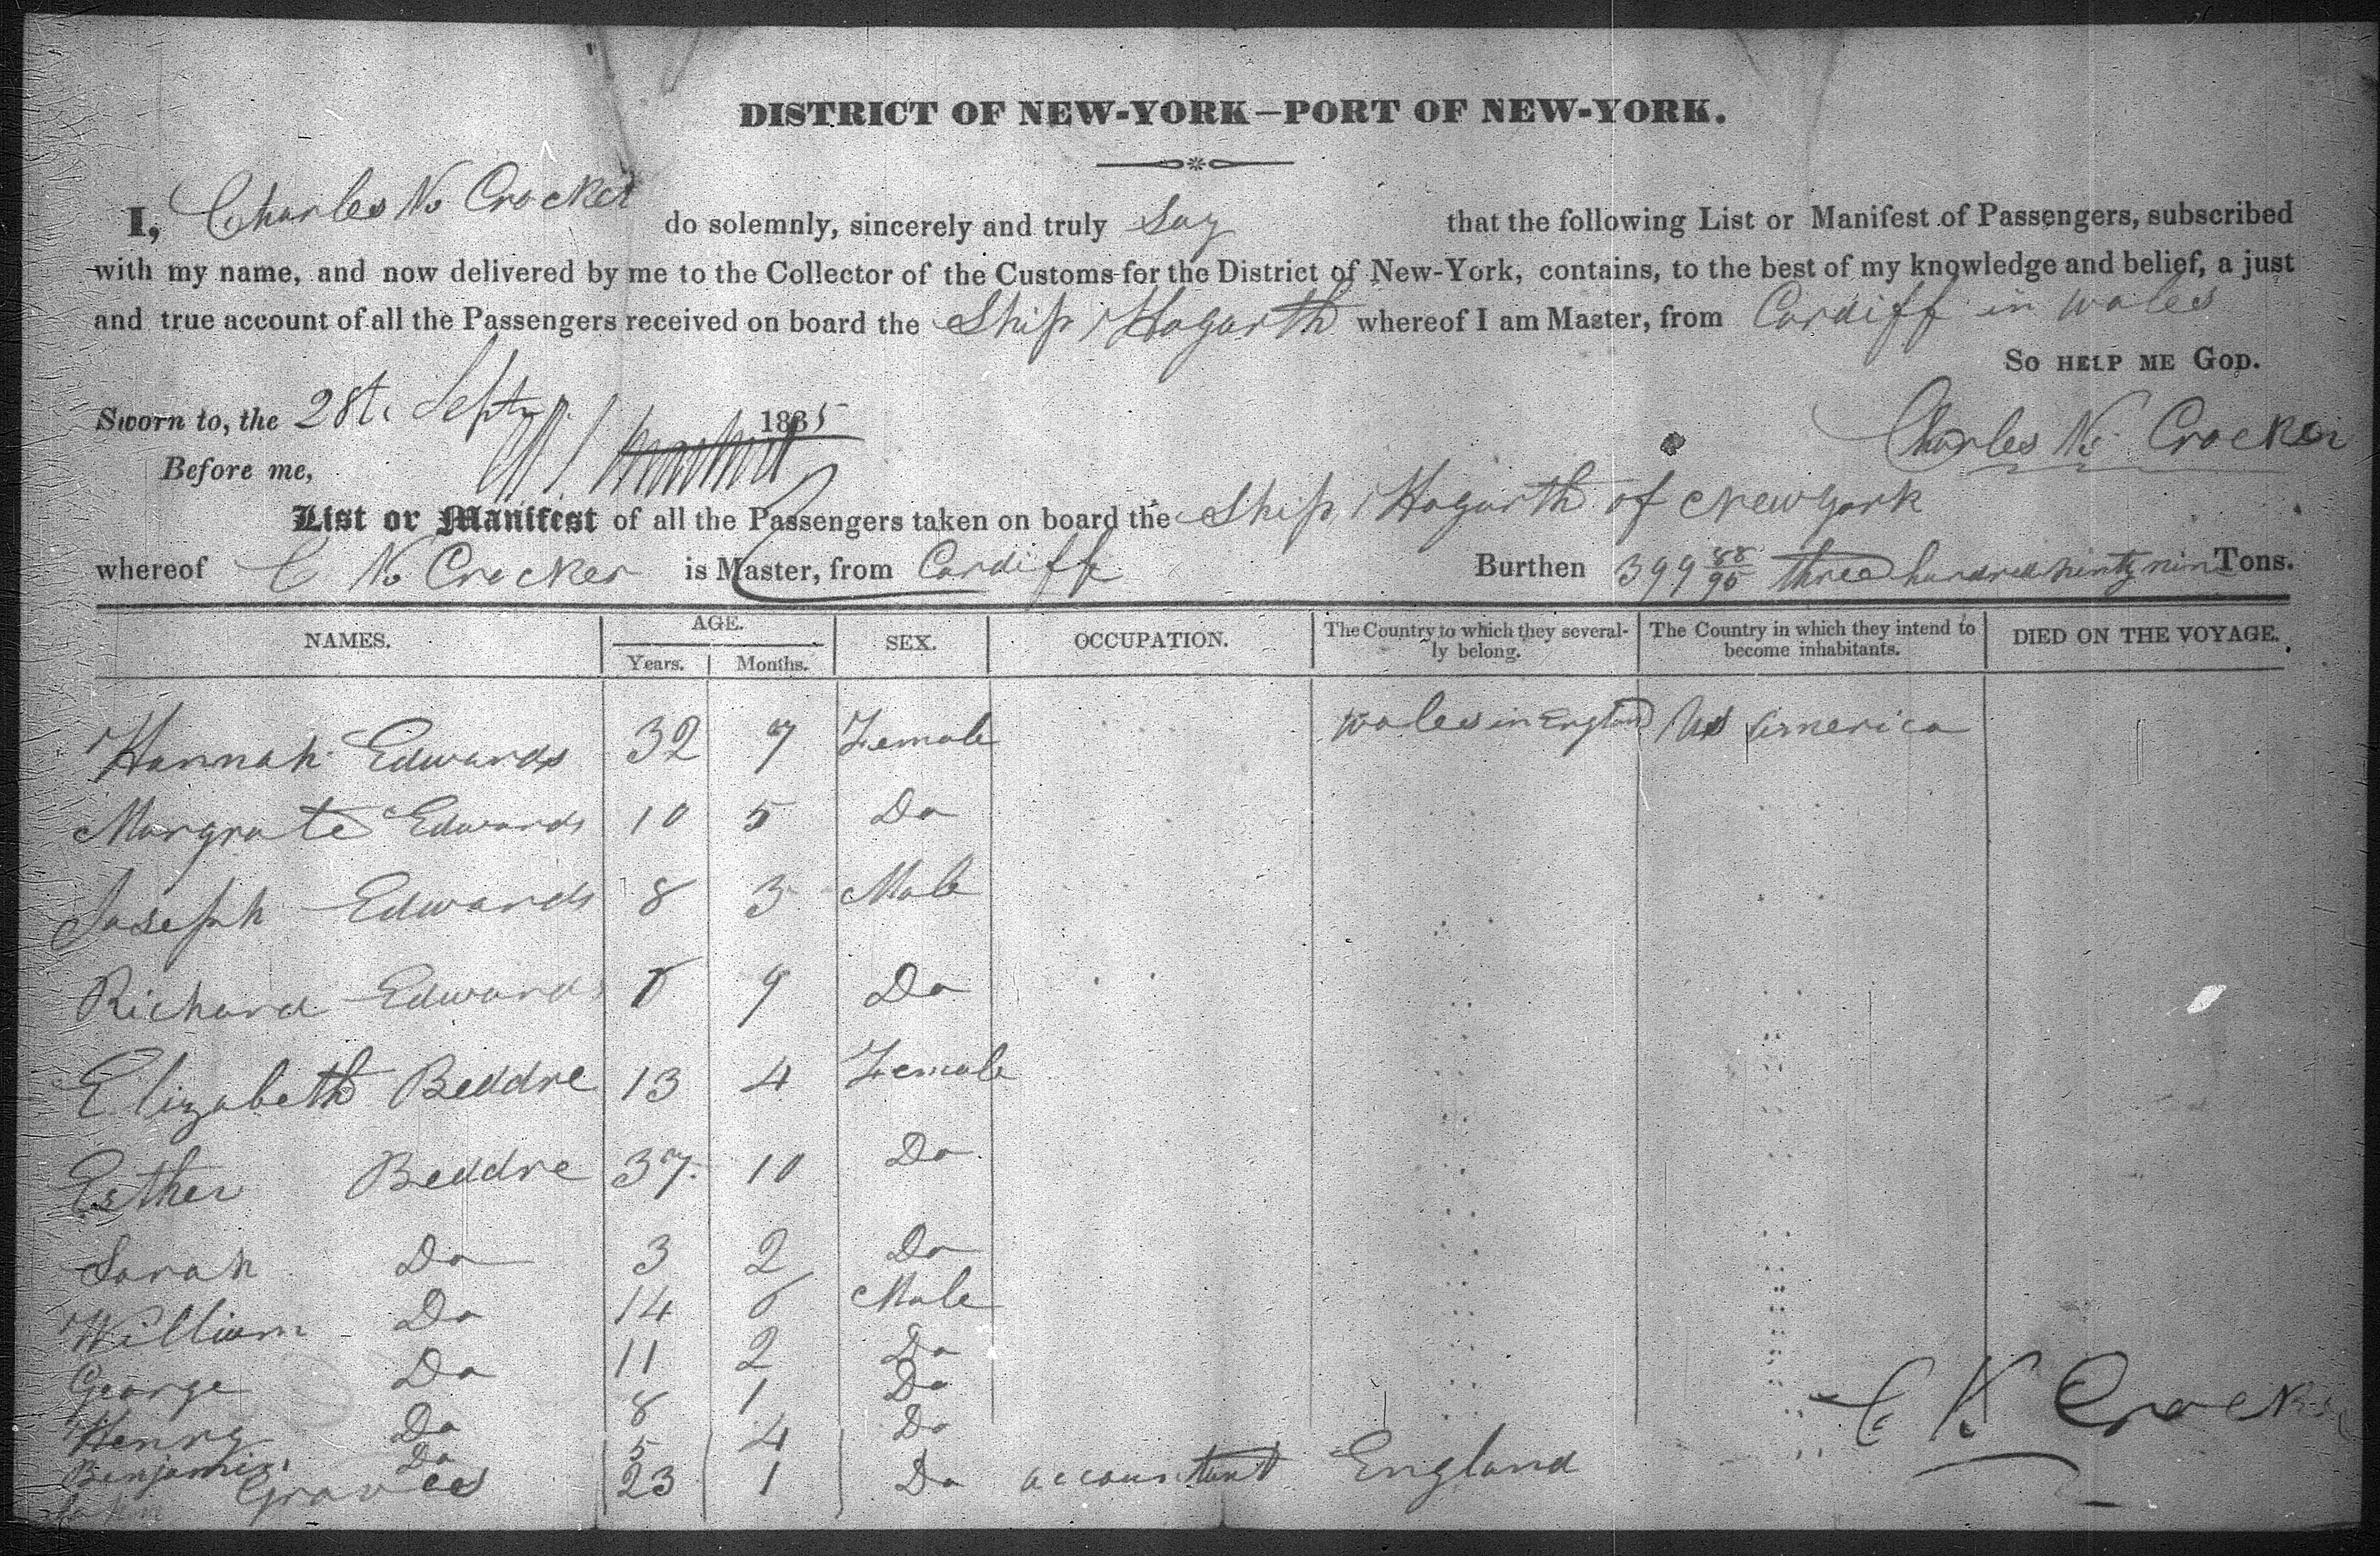 DISTRICT OF NEW-YORK—PORT OF NEW-YORK.
I, Charles N. Crocker do solemnly, sincerely and truly Say that the following List or Manifest of Passengers, subscribed
with my name, and now delivered by me to the Collector of the Customs for the District of New-York, contains, to the best of my knowledge and belief, a just
and true account of all the Passengers received on board the Ship Hogarth whereof I am Master, from Cardiff in Wales
So HELP ME GOD.
Sworn to, the 28th Septr 1835
Charles N. Crocker
Before me,
List or Manifest of all the Passengers taken on board the Ship Hogarth of New York
whereof C N. Crocker is Master, from Cardiff Burthen 399 88/95 three hundred ninty nin Tons.
NAMES. AGE. SEX. OCCUPATION. The Country to which they severally belong. The Country in which they intend to become inhabitants. DIED ON THE VOYAGE.
Years. Months.
Hannah Edwards 32 7 Female Wales in England US America
Margrate Edwards 10 5 Do
Joseph Edwards 8 3 Male
Richard Edwards 9 Do
Elizabeth Beddre 13 4 Female
Esther Beddre 37 10 Do
Sarah Do 3 2 Do
William Do 14 Male
George Do 11 2 Do
Henry Do 8 1 Do
Benjamin Do 5 4 Do
Graves 23 1 Do accountant England
C N Crocker